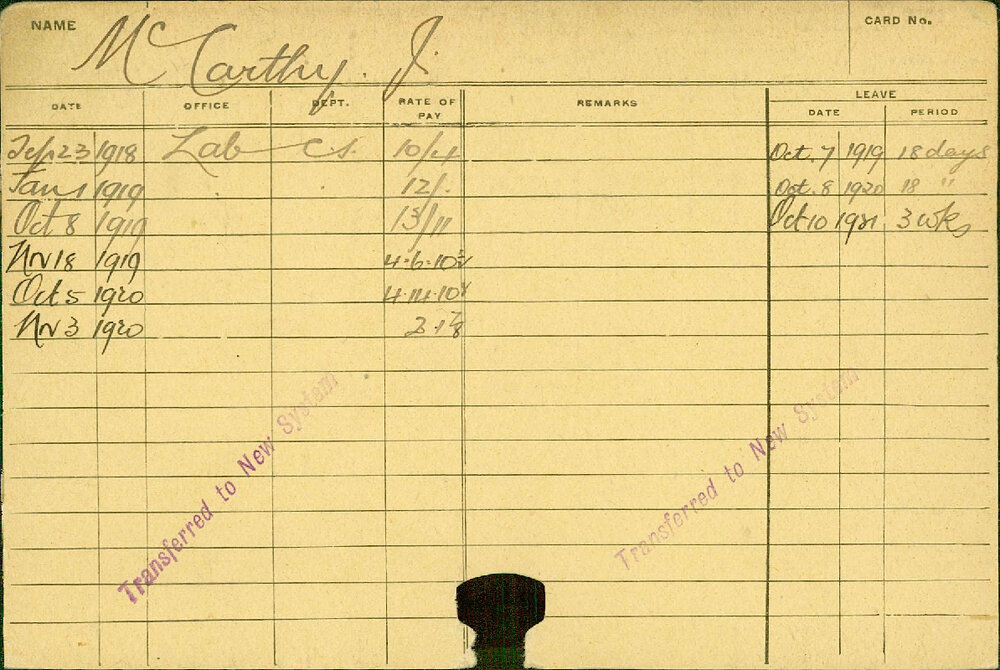 NAME McCarthy. J. CARD No.
DATE OFFICE DEPT. RATE OF PAY REMARKS LEAVE
DATE PERIOD
Sep 23 1918 Lab cs. 10/4 Oct. 7 1919 18 days
Jan 1 1919 " . 12/. Oct. 8 1920 18 "
Oct 8 1919 13/11 Oct 10 1921 3 wks
Nv 18 1919
Oct 5 1920
Nv 3 1920
Transferred to New System
Transferred to New System